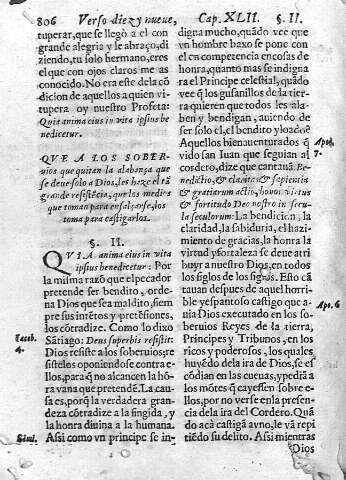 806 Verso diez y nueve, Cap. XLII. §. II.
tuperar, que se llegò a el con
grande alegria y le abraço, di
ziendo, tu solo hermano, eres
el que con ojos claros me as
conocido. No era este de la con
dicion de aquellos a quien vi-
tupera oy nuestro Propheta:
Quia anima eius in vita ipsius be
nedicetur.
QVE A LOS SOBER-
uios que quitan la alabança que
se deue solo a Dios, les haze el tã
grande resistẽcia, que los medios
que toman para ensalçarse, los
toma para castigarlos.
§. II.
QVIA anima eius in vita
ipsius benedicetur: Por
la misma razõ que el pecador
pretende ser bendito, orde-
na Dios que sea maldito, siem
pre sus intẽtos y pretẽsiones,
los cõtradize. Como lo dixo
Iacob. 4.
Sãtiago: Deus superbis resistit:
Dios resiste a los soberuios; re
sistelos oponiendose contra e-
llos, para q̃ no alcancen la hõ-
ra vana que pretendẽ. La cau-
sa es, porq̃ la verdadera gran-
deza cõtradize a la fingida, y
la honra diuina a la humana.
Simil.
Assi como vn principe se in-
digna mucho, quãdo vee que
vn hombre baxo se pone con
el en competencia en cosas de
honra, quanto mas se indigna
ra el Principe celestial, quãdo
vee q̃ los gusanillos de la tier-
ra quieren que todos les ala-
ben y bendigan, auiendo de
ser solo el, el bendito y loado?
Apo. 7.
Aquellos bienauenturados q̃
vido san Iuan que seguian al
cordero, dize que cantauã: Be-
nedictio, & claritas & sapientia
& gratiarum actio, honor virtus
& fortitudo Deo nostro in secu-
la seculorum: La bendicion, la
claridad, la sabiduria, el hazi-
miento de gracias, la honra la
virtud y fortaleza se deue atri
buyr a nuestro Dios, en todos
los siglos de los siglos. Esto cã
tauan despues de aquel horri-
Apo. 6
ble y espantoso castigo que a-
uia Dios executado en los so-
beruios Reyes de la tierra,
Principes y Tribunos, en los
ricos y poderosos, los quales
huyẽdo dela ira de Dios, se es
cõdian en las cueuas, y pediã a
los mõtes q̃ cayessen sobre e-
llos, por no verse en la presen-
cia dela ira del Cordero. Quã
do acà castigã avno, le vã repi
tiẽdo su delito. Assi mientras
Dios